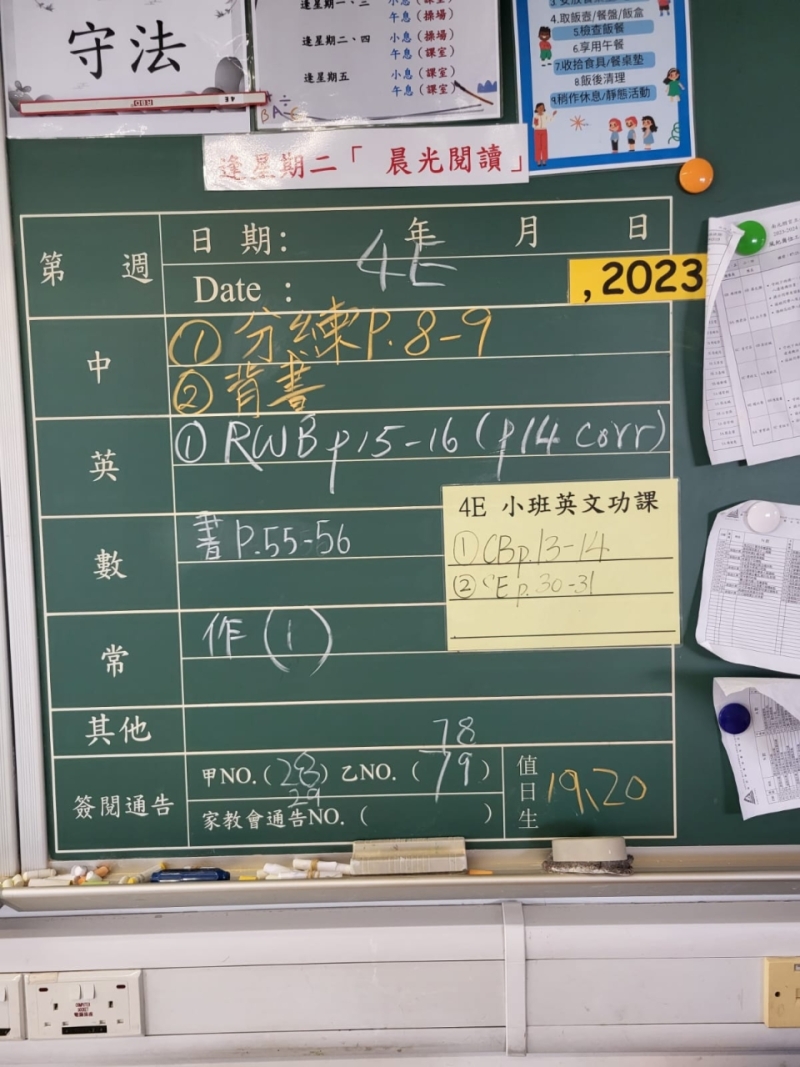 守法
逢星期一、三 小息（操場）
午息（操場）
逢星期二、四 小息（操場）
午息（課室）
逢星期五 小息（課室）
午息（課室）
4.取飯壺/餐盤/飯盒
5檢查飯餐
6.享用午餐
7.收拾食具/餐桌墊
8.飯後清理
9.稍作休息/靜態活動
逢星期二「 晨光閱讀」
第 週
日 期: 年 月 日
Date :
4E
, 2023
中
① 分練P.8-9
② 背書
英
① RWB p15-16 (p14 corr)
數
書 P.55-56
4E 小班英文功課
① CBp.13-14
② GE p.30-31
常
作 (1)
其他
簽閱通告
78
甲NO.( 28 ) 乙NO. ( 79 )
29
家教會通告NO. ( )
值日生
19、20